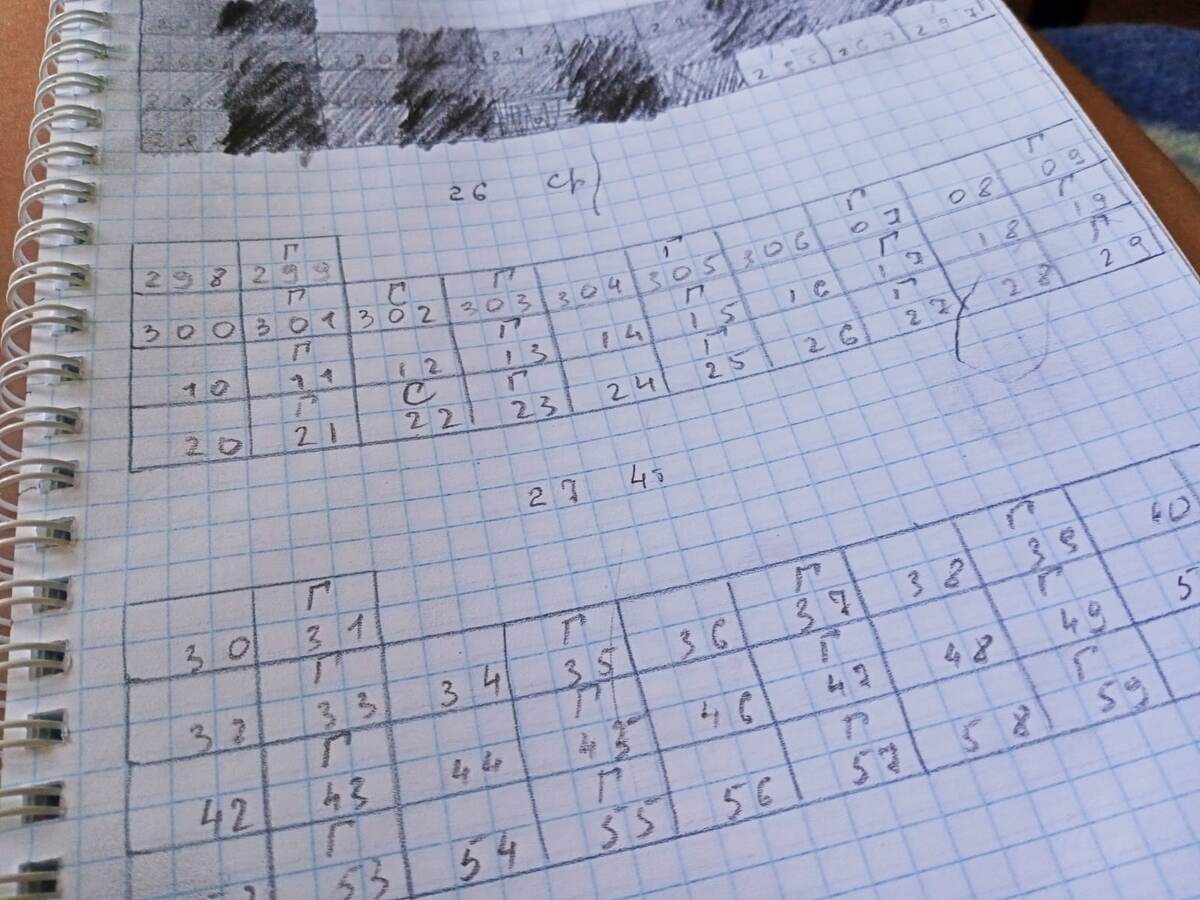 26 ср
Г
298 299
Г С Г Г Г Г
300 301 302 303 304 305 306 07 08 09
Г Г Г Г Г
10 11 12 13 14 15 16 17 18 19
Г С Г Г Г Г
20 21 22 23 24 25 26 27 28 29
27 чт
Г
30 31
Г Г Г Г
32 33 34 35 36 37 38 39 40
Г Г Г Г
42 43 44 45 46 47 48 49
Г Г Г Г
53 54 55 56 57 58 59